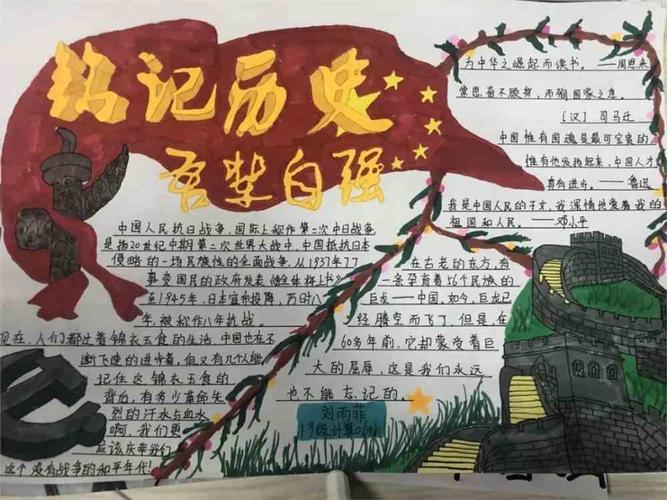 铭记历史
吾辈自强
为中华之崛起而读书。——周恩来
常思奋不顾身,而殉国家之急。
(汉)司马迁
中国惟有国魂是最可宝贵的
惟有他发扬起来,中国人才有
真有进步。——鲁迅
我是中国人民的子女,我深情地爱着我的
祖国和人民。——邓小平
中国人民抗日战争,国际上称作第二次中日战争
是指20世纪中期第二次世界大战中,中国抵抗日本
侵略的一场民族性的全面战争,从1937年77
事变国民的政府发表
至1945年,日本宣布投降,历时八
年,被称作八年抗战。
现在,人们都过着锦衣玉食的生活,中国也在不
断飞速的进步着,但又有几个人能
记住这锦衣玉食的
背后,有多少革命先
烈的汗水与血水
啊,我们更
应该庆幸我们
这个没有战争的和平年代!
在古老的东方,有
一条孕育着56个民族的
巨龙——中国,如今,巨龙已
经腾空而飞了,但是,在
60多年前,它却蒙受着巨
大的屈辱,这是我们永远
也不能忘记的。
刘雨菲